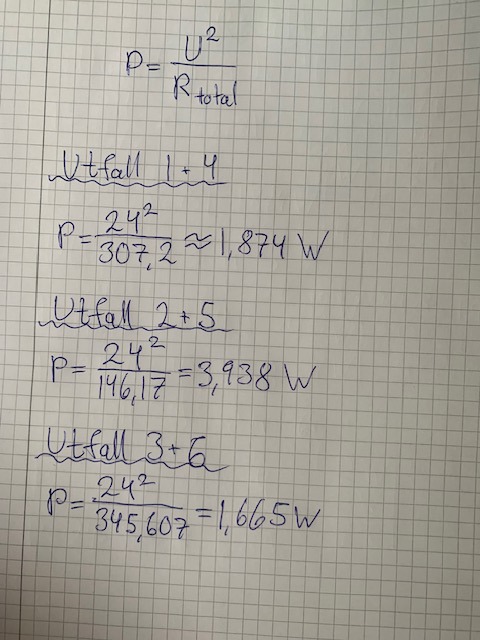 P = U² / R total
Utfall 1+4
P = 24² / 307,2 ≈ 1,874 W
Utfall 2+5
P = 24² / 146,17 = 3,938 W
Utfall 3+6
P = 24² / 345,607 = 1,665 W